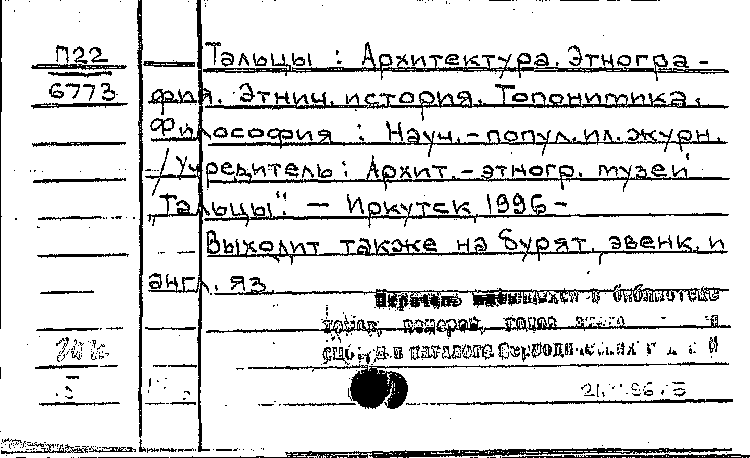 П22 Тальцы : Архитектура. Этногра-
6773 фия. Этнич. история. Топонимика.
Философия : Науч.-попул. ил. журн.
/ Учредитель : Архит.-этногр. музей
"Тальцы". — Иркутск, 1996 -
Выходит также на бурят., эвенк. и
англ. яз.
Перечень имеющихся в библиотеке
томов, номеров, годов
смотри в каталоге периодических